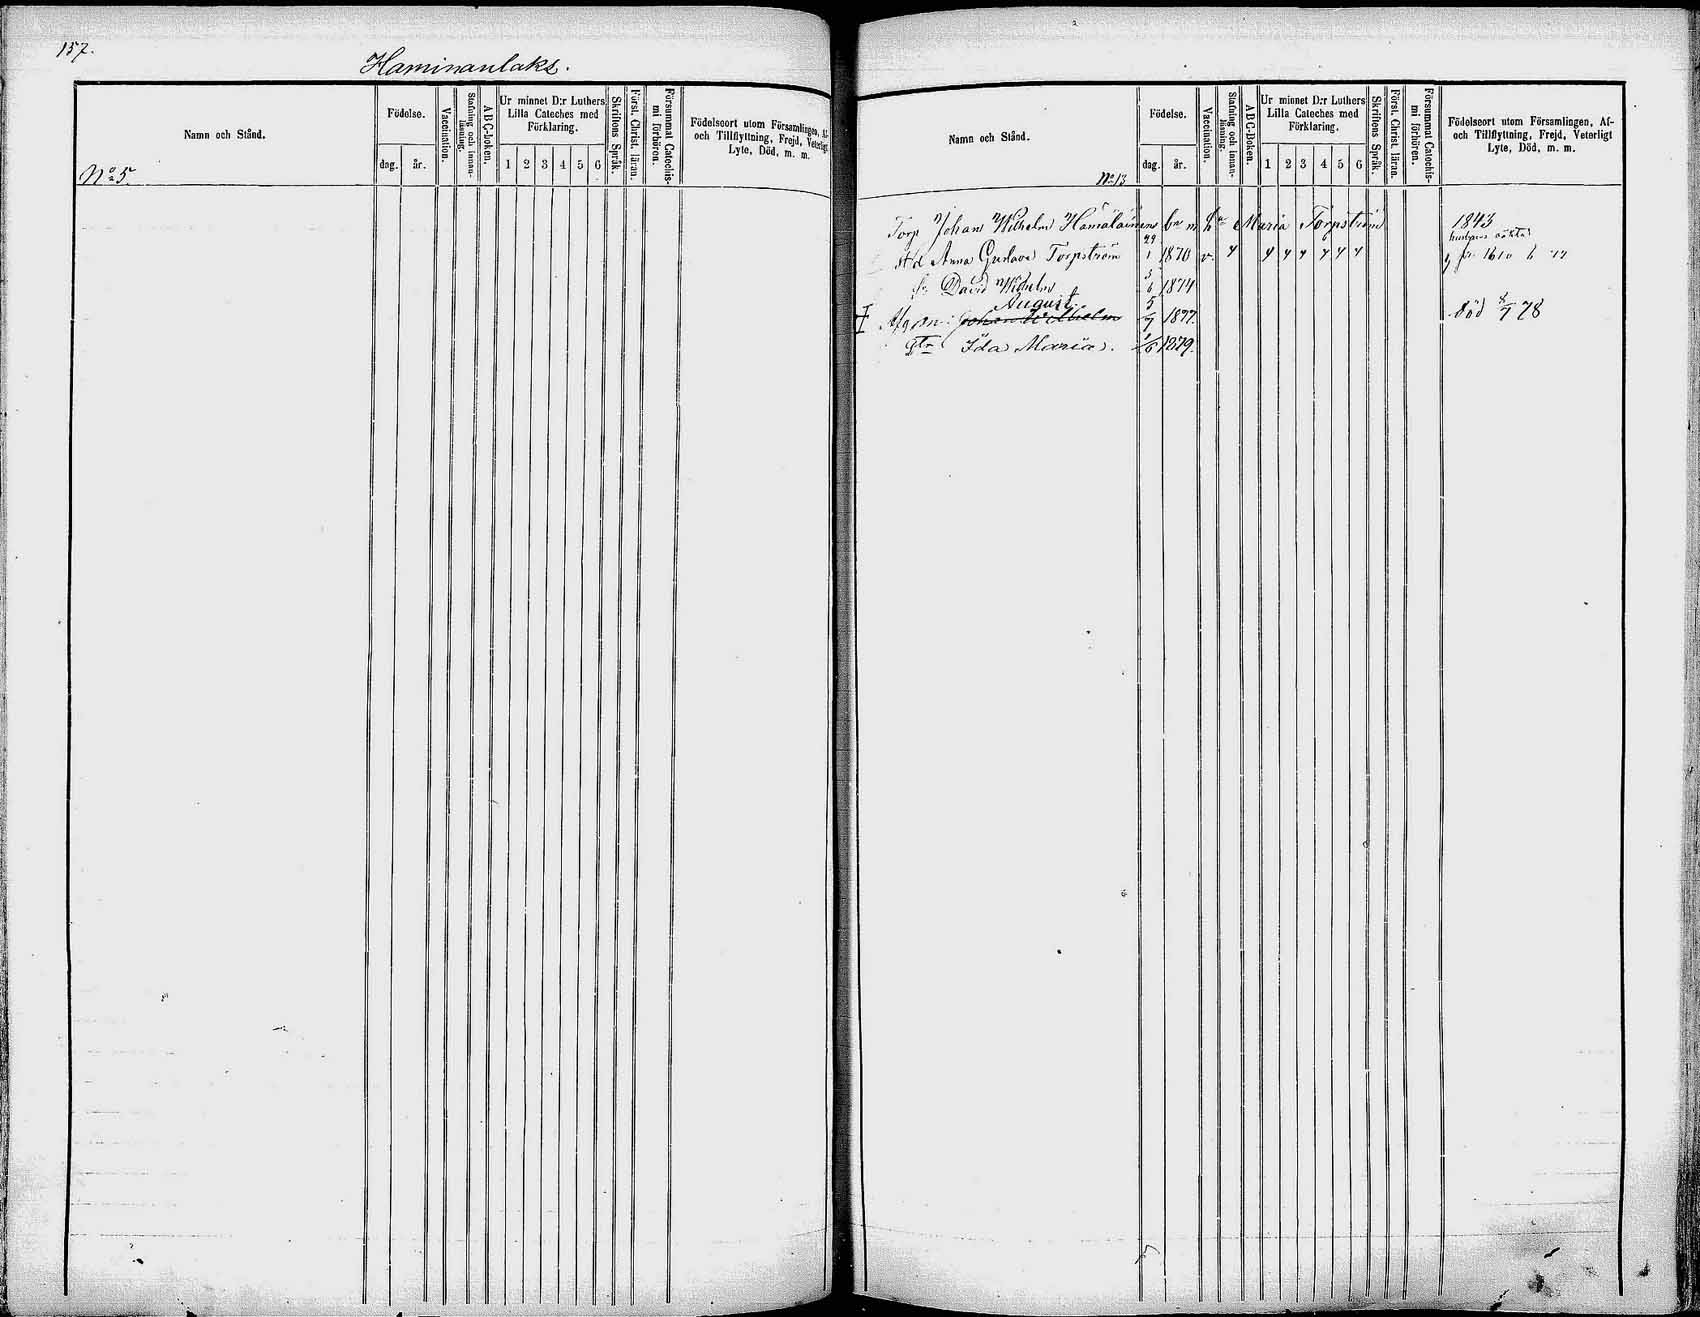 157.
Haminanlaks.
Namn och Stånd.
Födelse.
dag. år.
Vaccination.
Stafning och innan-läsning.
A B C-boken.
Ur minnet D:r Luthers Lilla Cateches med Förklaring.
1 2 3 4 5 6
Skriftens Språk.
Först. Christ. läran.
Försummat Catechis-mi förhören.
Födelseort utom Församlingen, Af- och Tillflyttning, Frejd, Veterligt Lyte, Död, m. m.
No 5.
Namn och Stånd.
Födelse.
dag. år.
Vaccination.
Stafning och innan-läsning.
A B C-Boken.
Ur minnet D:r Luthers Lilla Cateches med Förklaring.
1 2 3 4 5 6
Skriftens Språk.
Först. Christ. läran.
Försummat Catechis-mi förhören.
Födelseort utom Församlingen, Af- och Tillflyttning, Frejd, Veterligt Lyte, Död, m. m.
No 13
Torp Johan Wilhelm Hämäläinens m Maria Torpström 1843
Anna Gustava Torpström 29/1 1870 v.
David Wilhelm 5/6 1874
August
Johan Wilhelm 5/7 1877. död 8/7 78
Dtr Ida Maria. 1/6 1879.